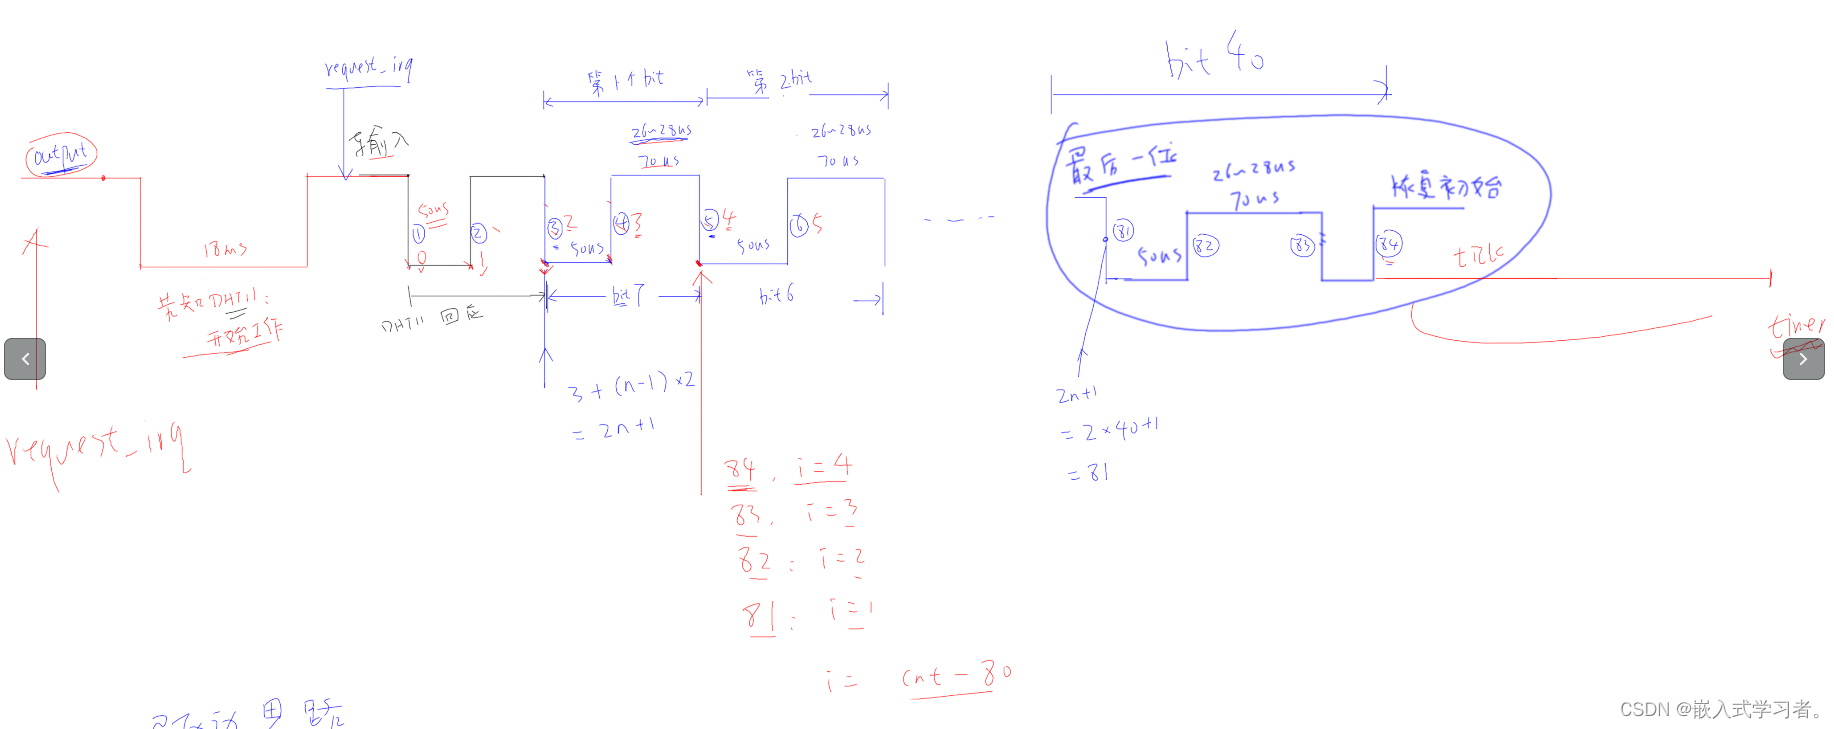 bit 40
request_irq
第1个bit
第2bit
26~28us
26~28us
output
输入
70us
70us
最后一位
26~28us
70us
恢复初始
50us
① ② ③ 2 ④ 3 ⑤ 4 ⑥ 5
0 1
18ms
50us
50us
81 82 83 84
50us
DHT11:
开始工作
DHT11 回应
bit7
bit6
timer
3+(n-1)×2
=2n+1
2n+1
=2×40+1
=81
request_irq
84, i=4
83, i=3
82: i=2
81: i=1
i= cnt-80
思路
CSDN @嵌入式学习者。